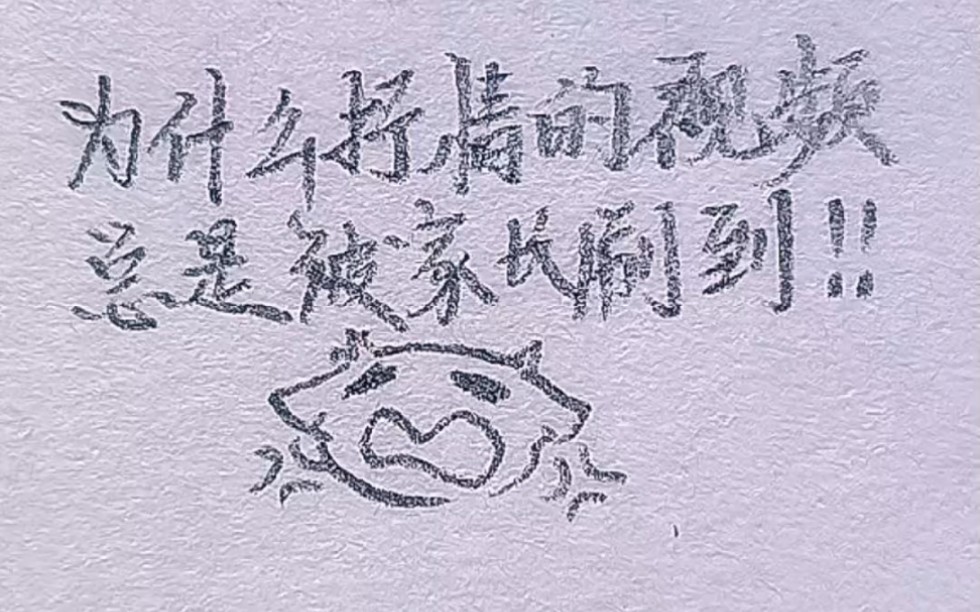 为什么抒情的视频
总是被家长刷到!!